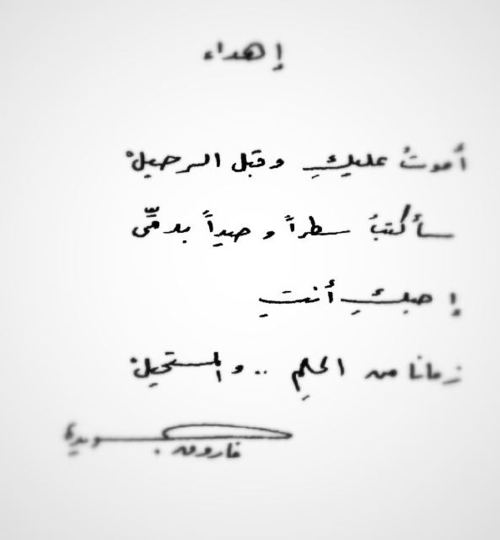 إهداء
أموتُ عليكِ وقبل الرحيلْ
سأكتبُ سطراً وحيداً بدمِّى
أحبكِ أنتِ
زمانا من الحلمِ .. والمستحيلْ
فاروق جويدة